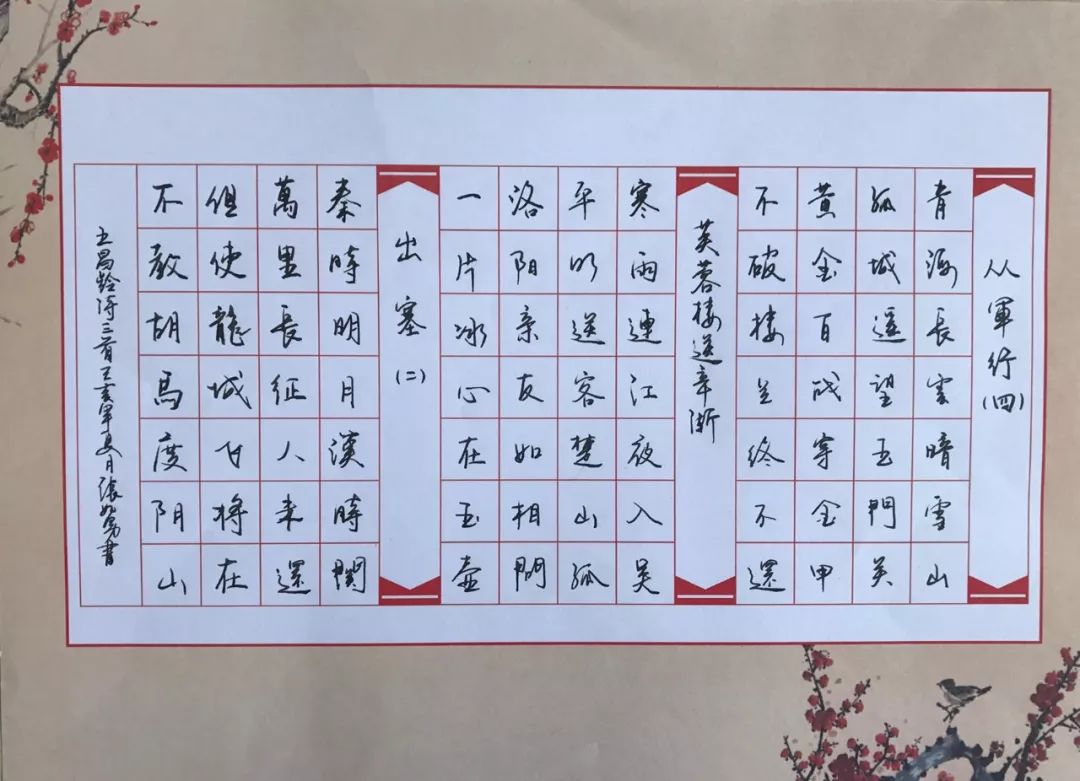 从軍行(四)
青海長雲暗雪山
孤城遥望玉門关
黄金百战穿金甲
不破楼兰终不還
芙蓉楼送辛渐
寒雨連江夜入吴
平明送客楚山孤
洛阳亲友如相問
一片冰心在玉壺
出塞(二)
秦時明月漢時関
萬里長征人未還
但使龍城飞将在
不教胡馬度阴山
王昌龄诗三首年夏月张書